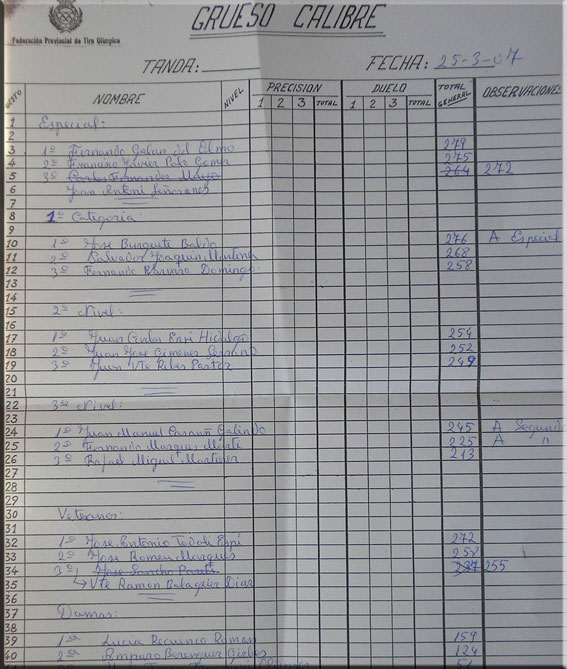 Federación Provincial de Tiro Olímpico
GRUESO CALIBRE
TANDA: FECHA: 25-3-07
PUESTO NOMBRE NIVEL PRECISION DUELO TOTAL GENERAL OBSERVACIONES
1 2 3 TOTAL 1 2 3 TOTAL
1 Especial:
2
3 1º Fernando Galan del Olmo 279
4 2º Francisco Xavier Polo Gomar 275
5 3º Carlos Fernandez 264 272
6 Joan Antoni Señoranes
7
8 1ª Categoria:
9
10 1º Jose Burguete Balda 276 A Especial
11 2º Salvador Joaquin Montina 268
12 3º Fernando Domingo 258
13
14
15 2º Nivel:
16
17 1º Juan Carlos Enri Hidalgo 254
18 2º Juan Jose Gimenez Serrano 252
19 3º Juan Vte Ribes Pastor 249
20
21
22 3º Nivel:
23
24 1º Juan Manuel Casañ Galindo 245 A Segundo
25 2º Fernando Marques Marti 225 A "
26 3º Rafael Miguel Martinez 213
27
28
29
30 Veteranos:
31
32 1º Jose Antonio Tadali Espi 272
33 2º Jose Romeu Marques 258
34 3º Jose Sancho 237 255
35 Vte Ramon Balaguer Diaz
36
37 Damas:
38
39 1ª Lucia Recuenco Roman 159
40 2ª Amparo Berenguer 124